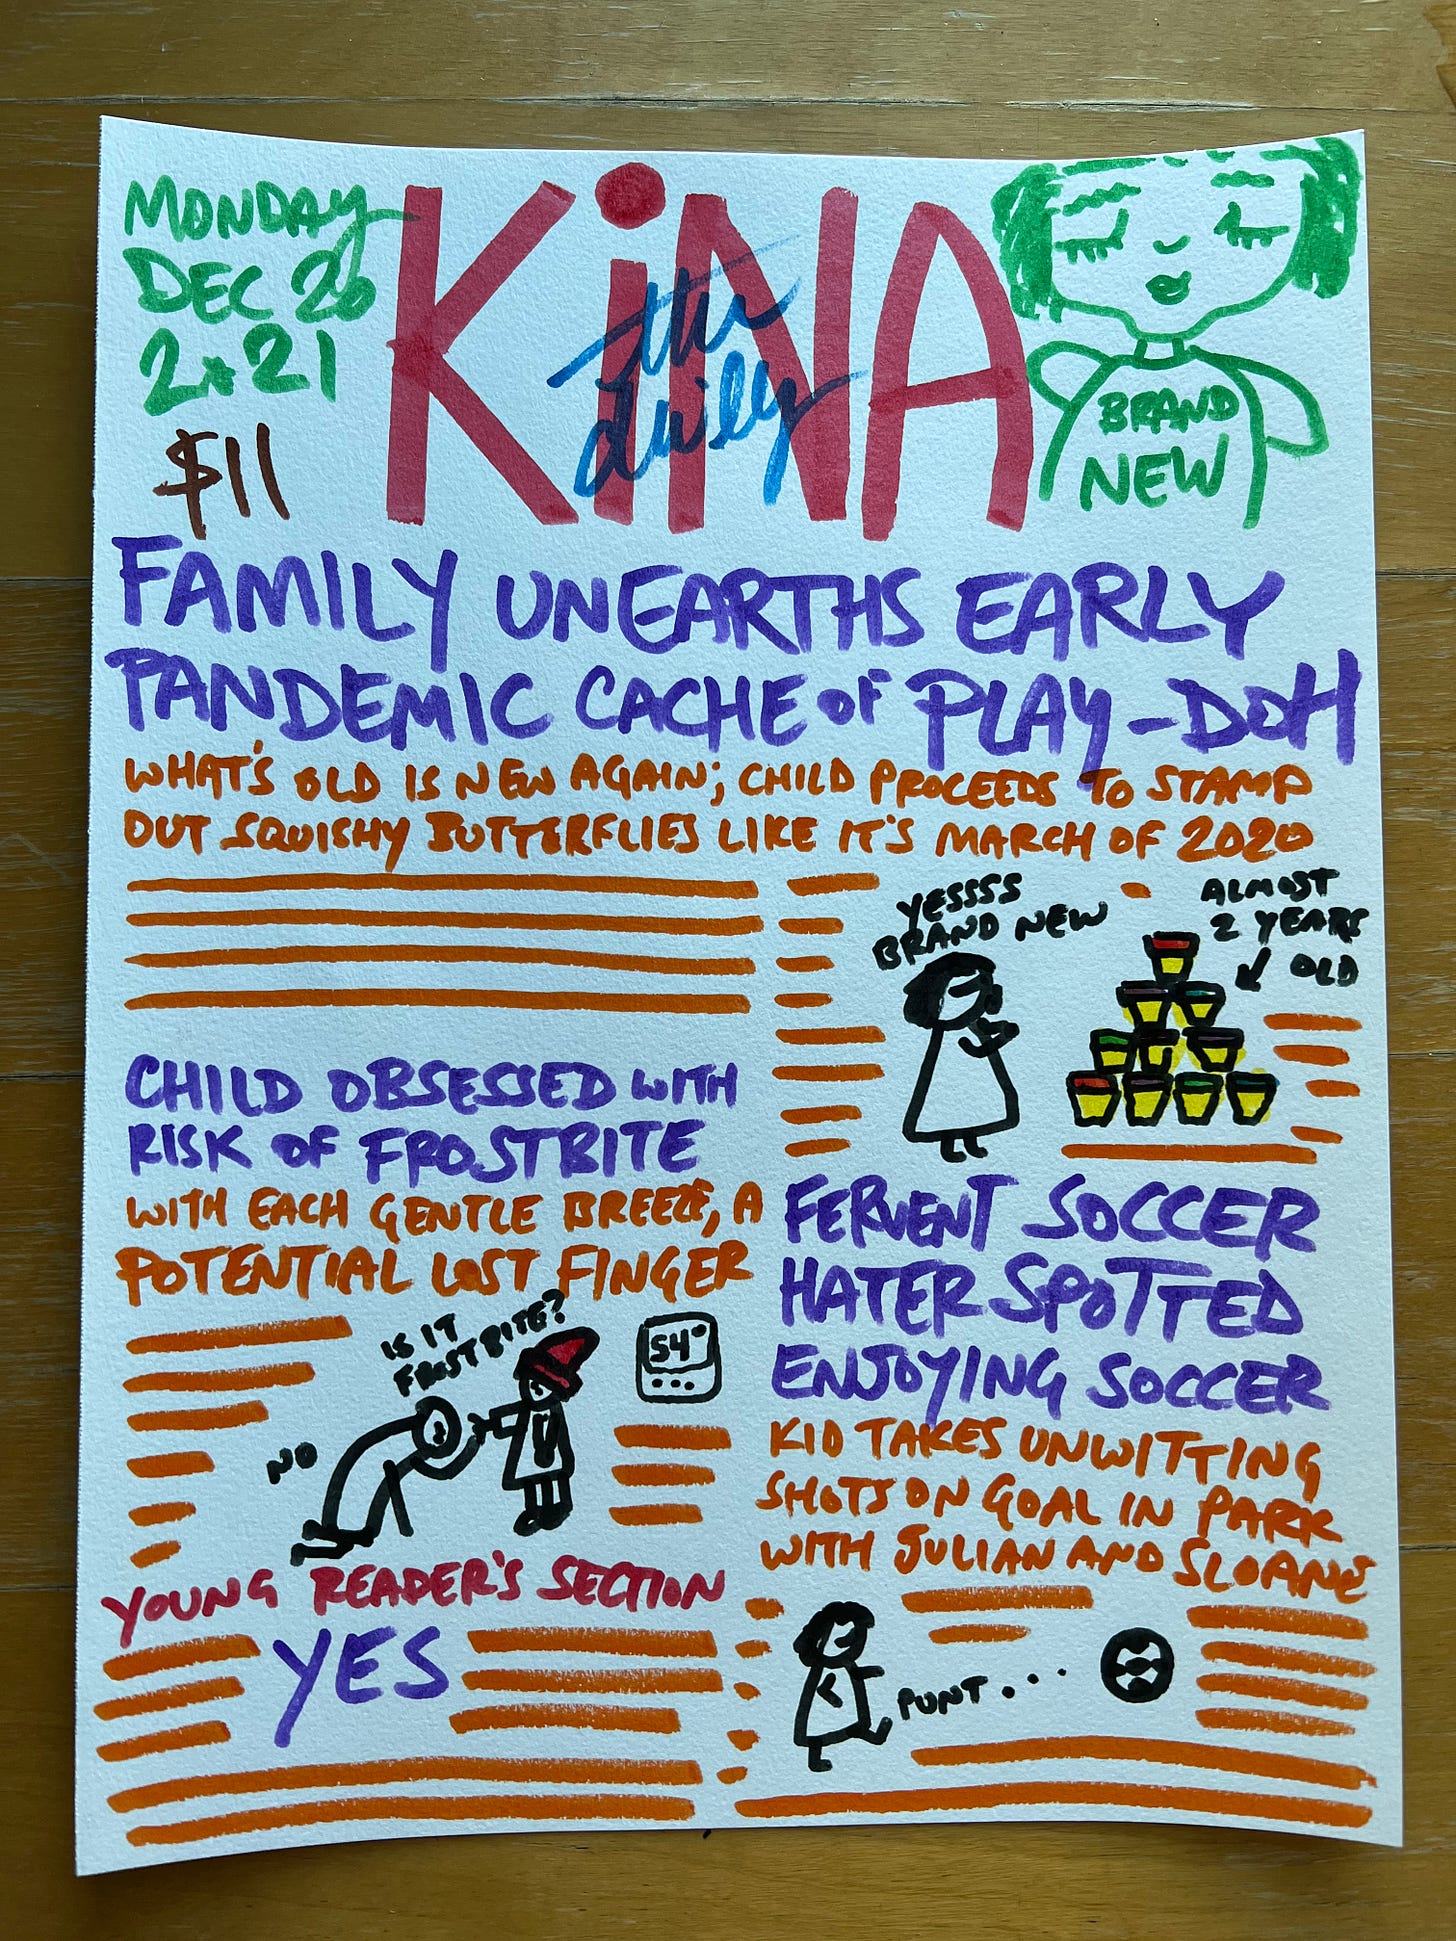 MONDAY
DEC 26
2021
$11
KiNA
the
daily
BRAND
NEW
FAMILY UNEARTHS EARLY
PANDEMIC CACHE OF PLAY-DOH
WHAT'S OLD IS NEW AGAIN; CHILD PROCEEDS TO STAMP
OUT SQUISHY BUTTERFLIES LIKE IT'S MARCH OF 2020
YESSSS
BRAND NEW
ALMOST
2 YEARS
OLD
CHILD OBSESSED WITH
RISK OF FROSTBITE
WITH EACH GENTLE BREEZE, A
POTENTIAL LOST FINGER
IS IT
FROSTBITE?
NO
54°
FERVENT SOCCER
HATER SPOTTED
ENJOYING SOCCER
KID TAKES UNWITTING
SHOTS ON GOAL IN PARK
WITH JULIAN AND SLOANE
PUNT...
YOUNG READER'S SECTION
YES